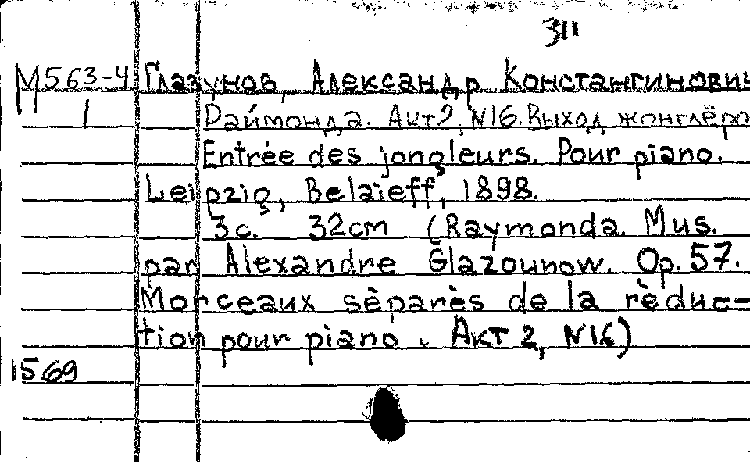 311
М563-4 Глазунов, Александр Константинович
1 Раймонда. Акт 2, N16. Выход жонглёро
Entrée des jongleurs. Pour piano.
Leipzig, Belaïeff, 1898.
3 с. 32см (Raymonda. Mus.
par Alexandre Glazounow. Op. 57.
Morceaux sèparès de la rèduc-
tion pour piano. Акт 2, N16)
1569